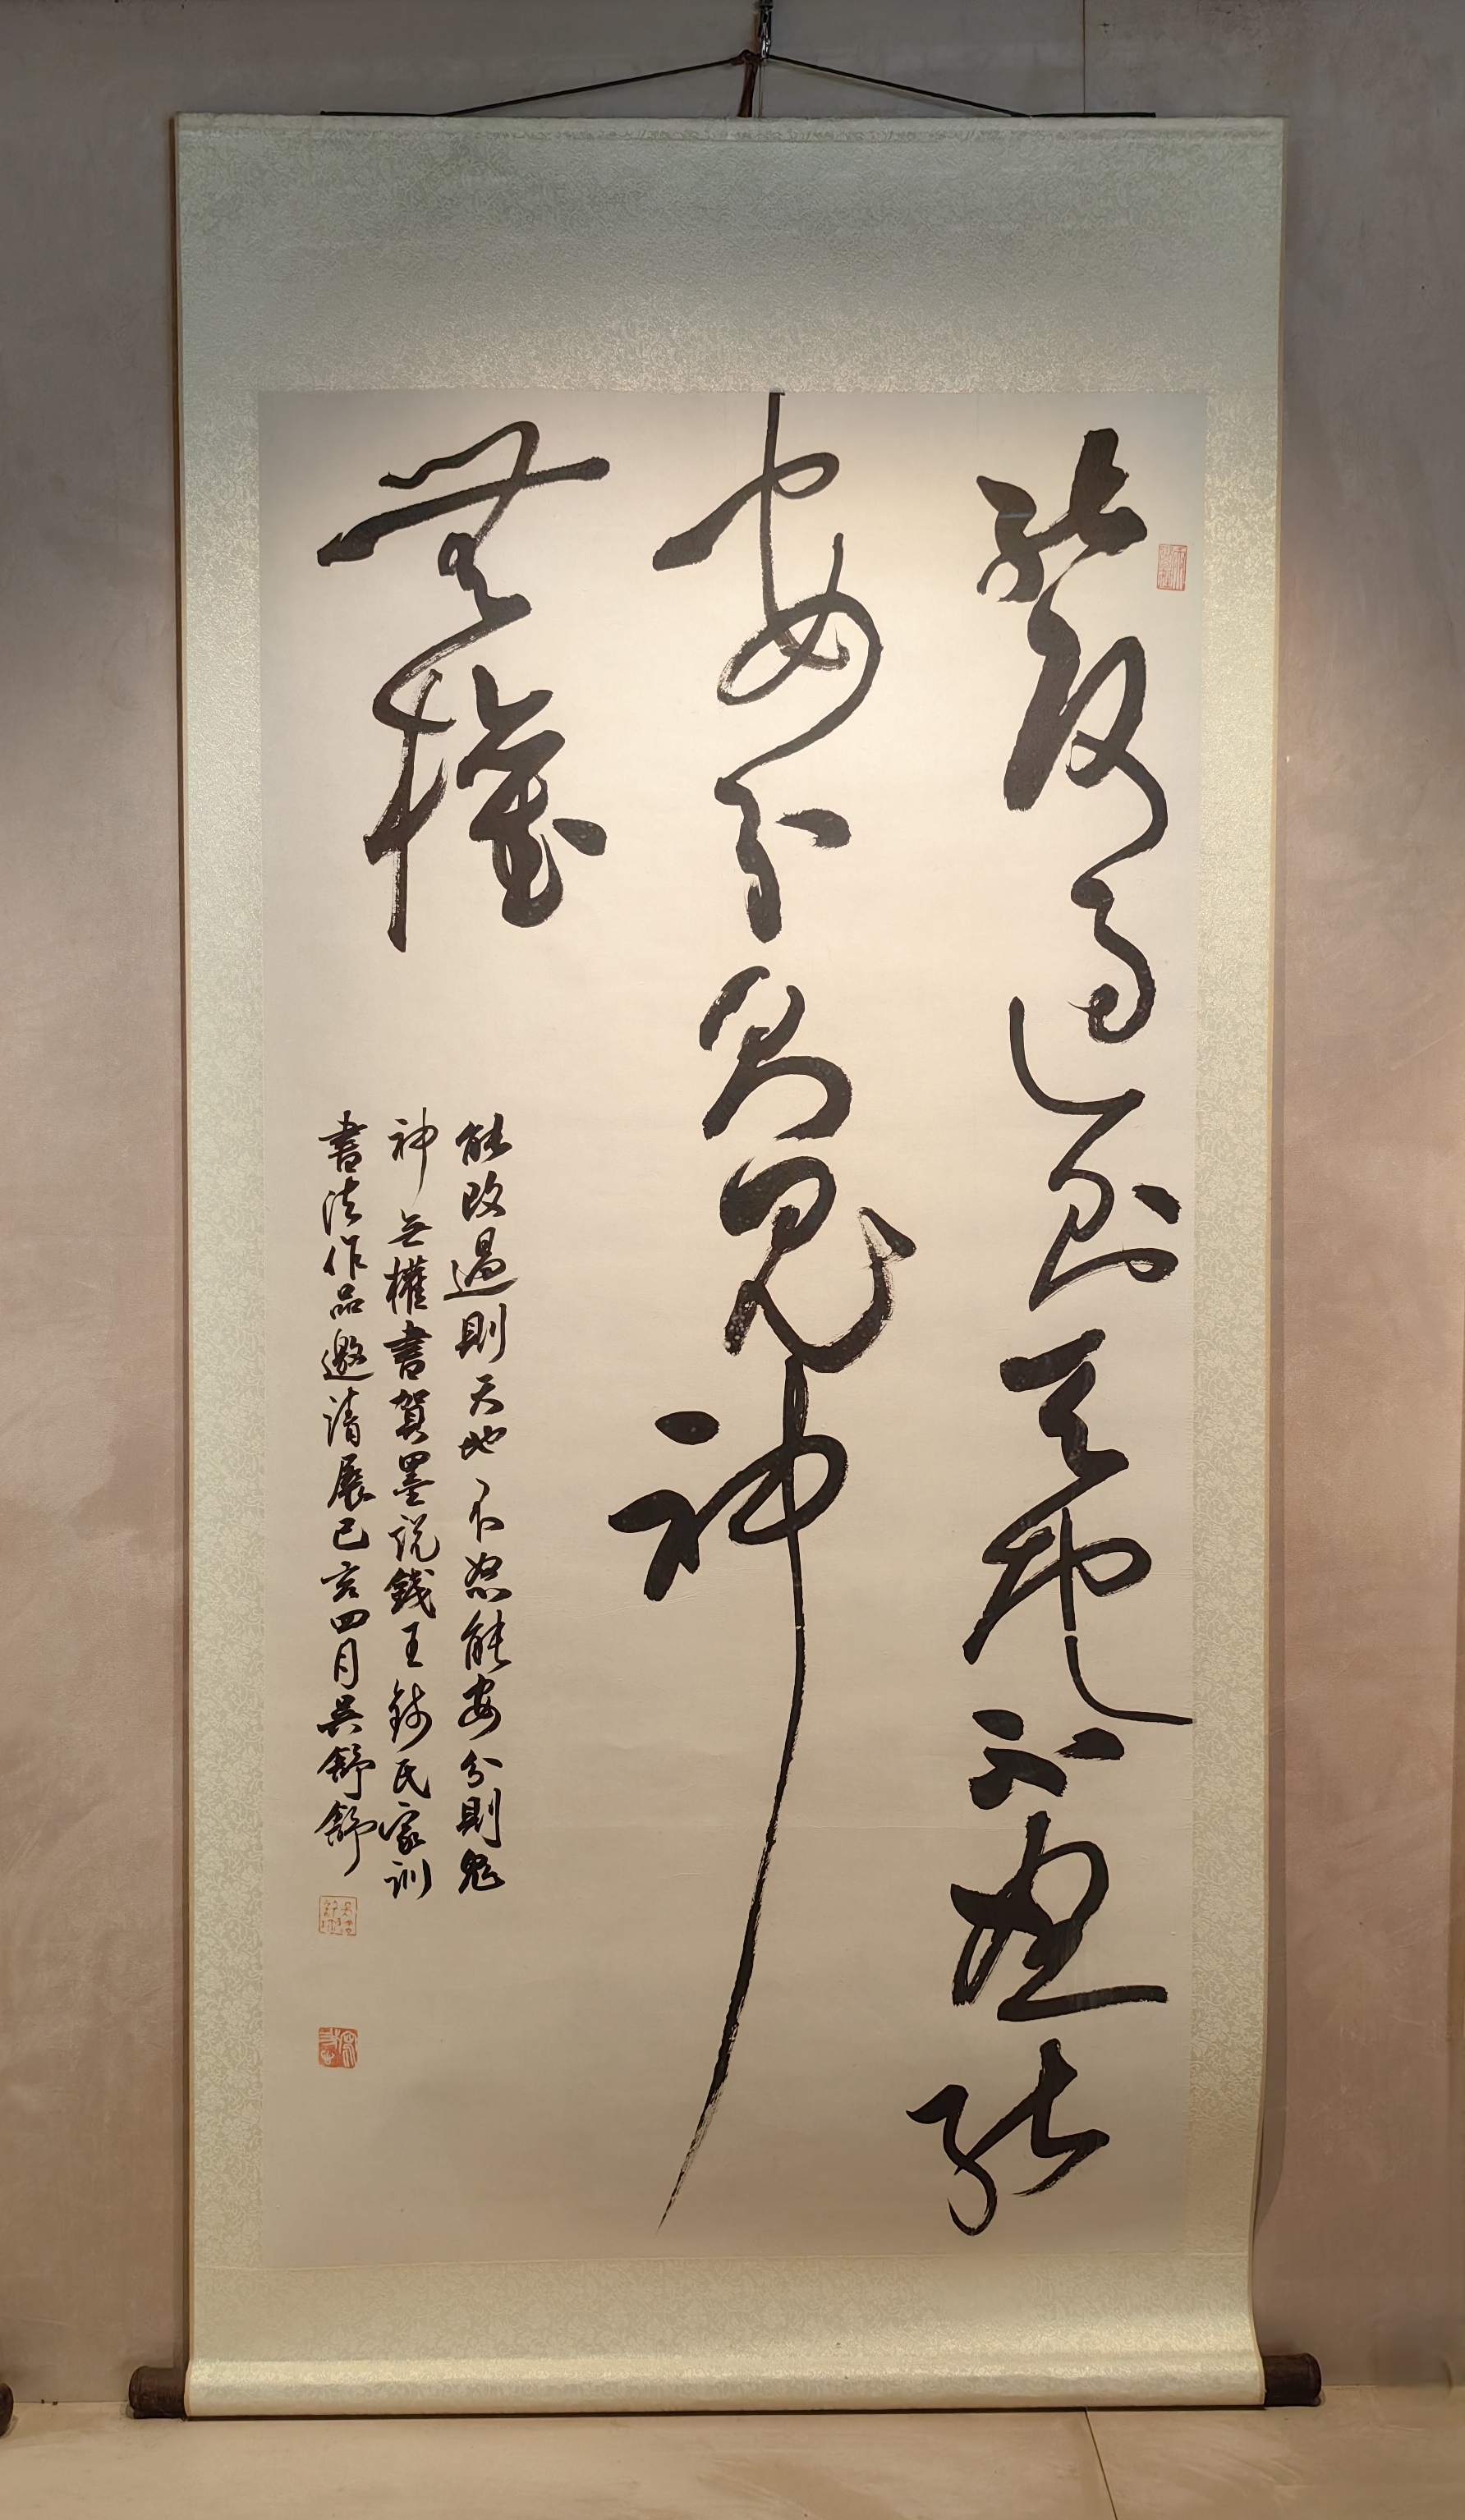 能改過則天地不怒能
安分則鬼神
無權
能改過則天地不怒能安分則鬼
神無權書賀墨説錢王錢氏家訓
書法作品邀請展己亥四月吳舒舒